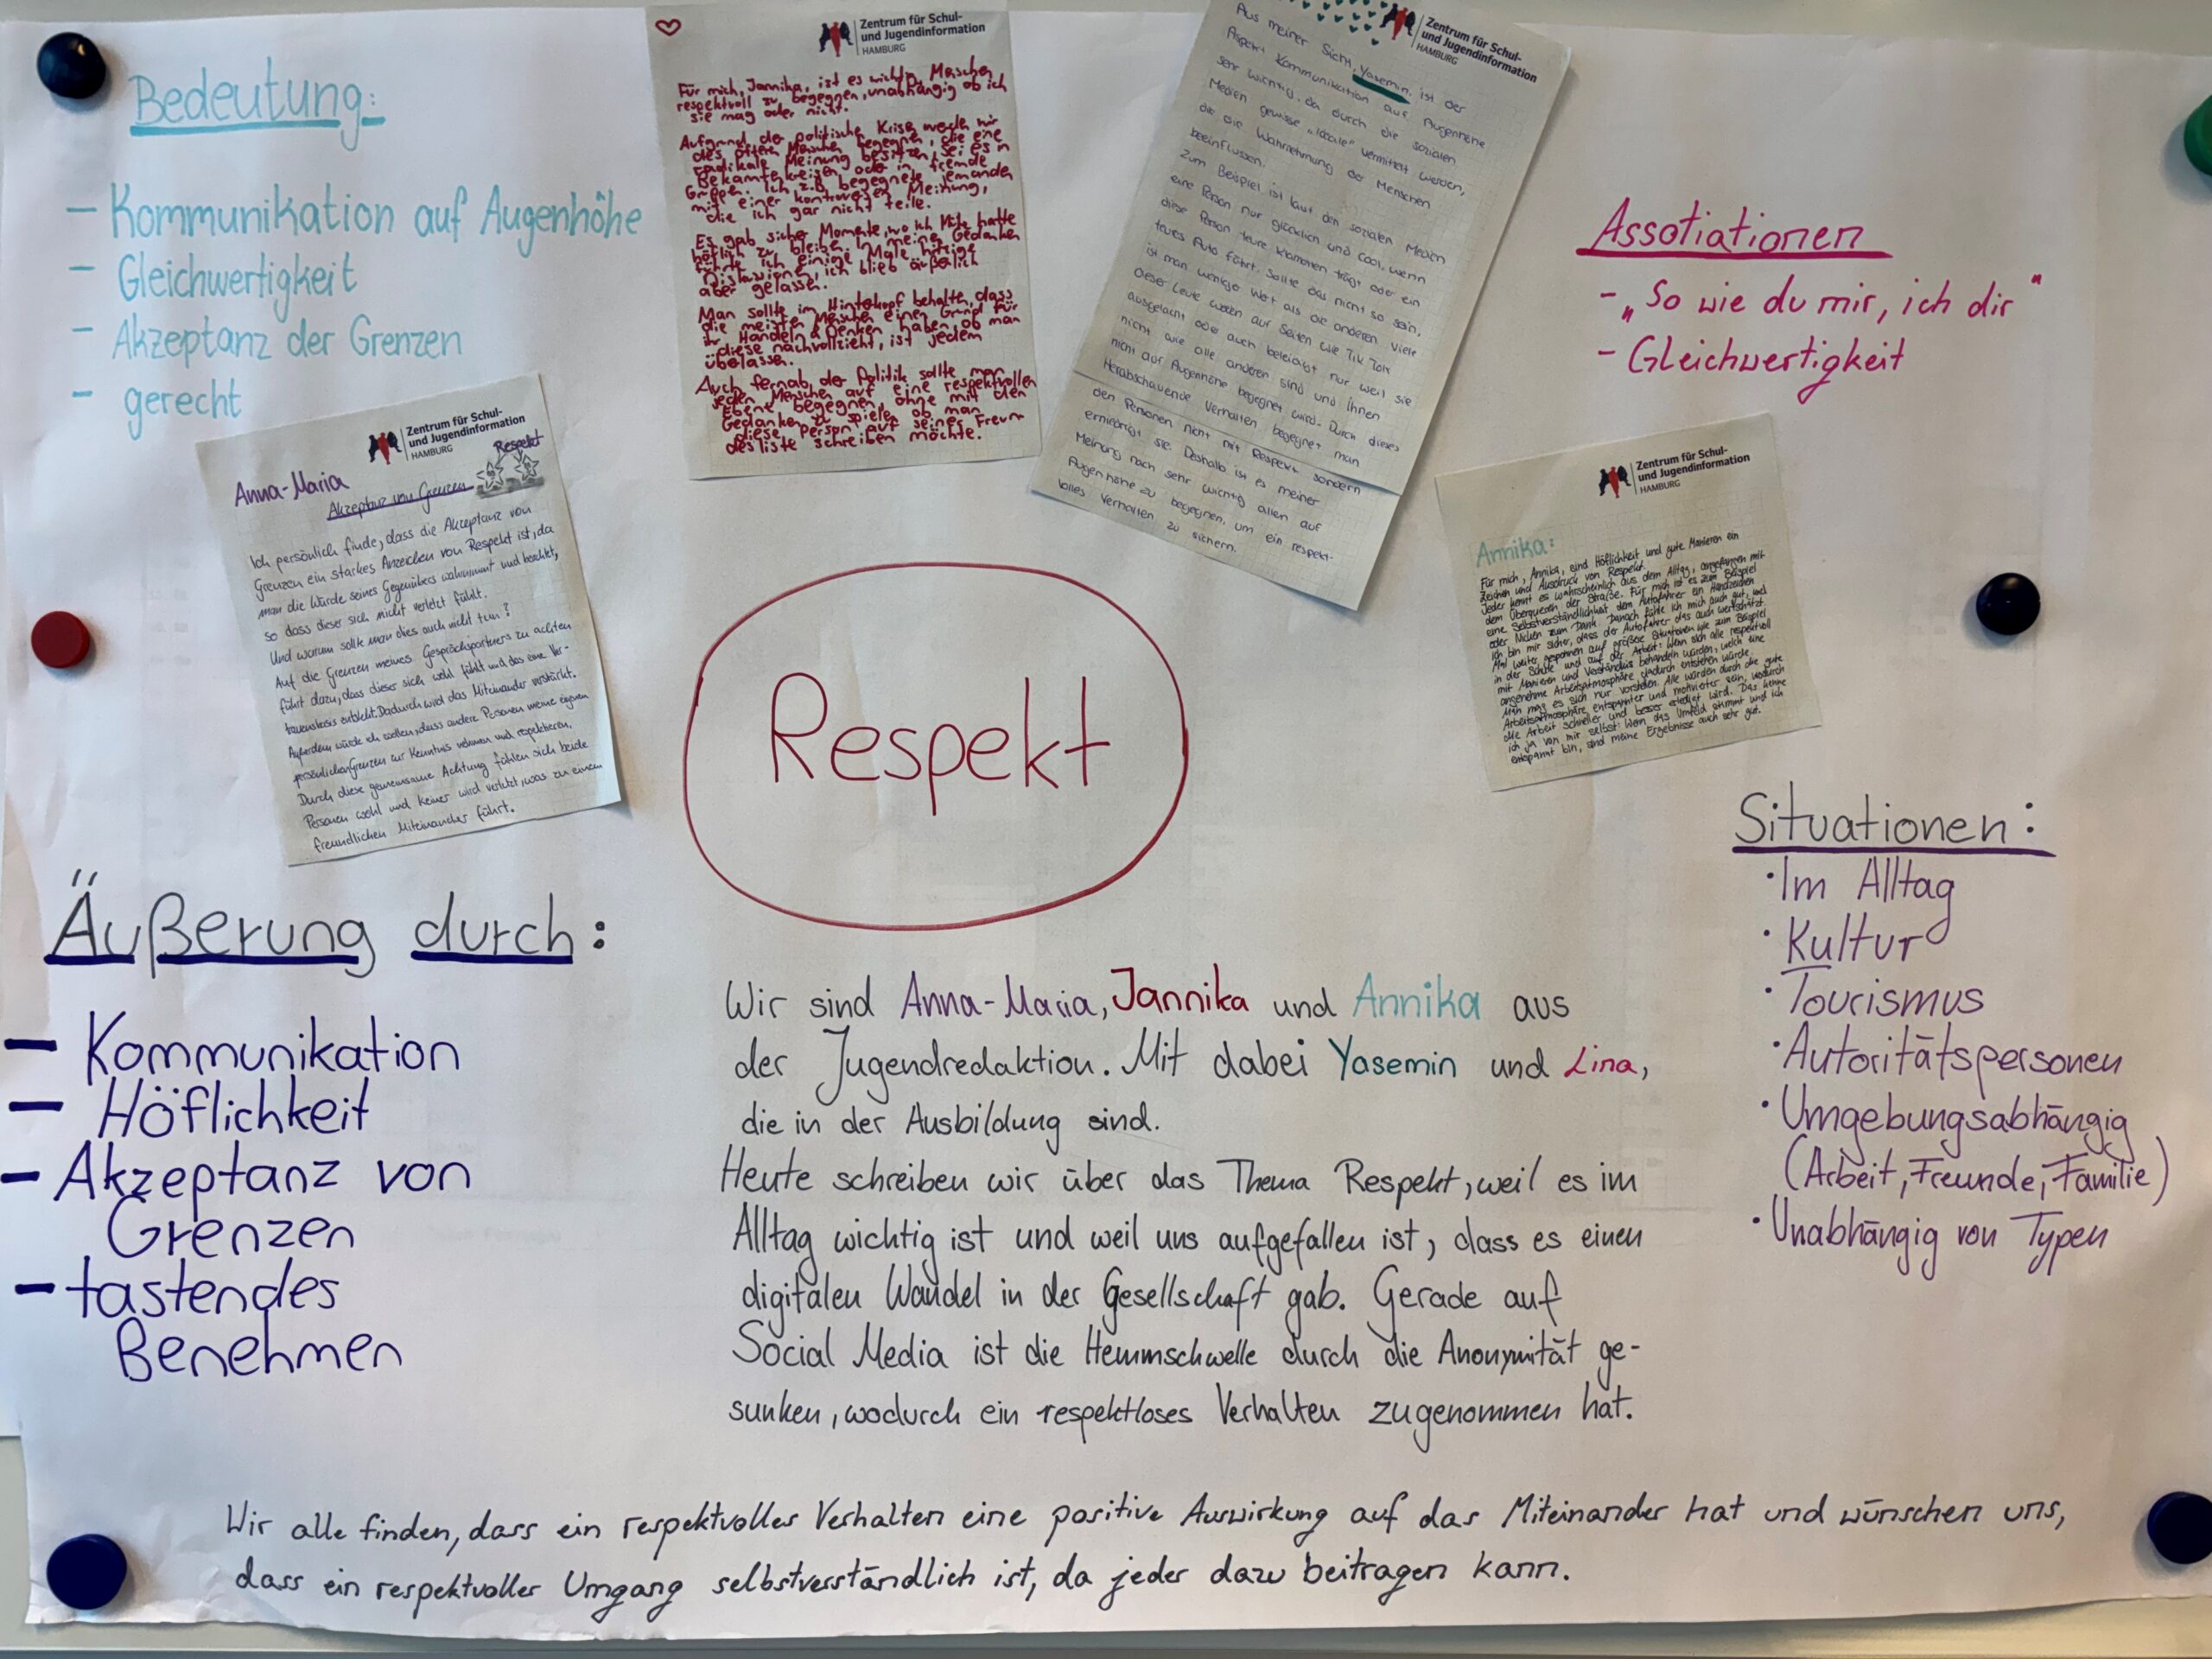 Bedeutung:
– Kommunikation auf Augenhöhe
– Gleichwertigkeit
– Akzeptanz der Grenzen
– gerecht
Zentrum für Schul-
und Jugendinformation
HAMBURG
Für mich, Jannika, ist es wichtig Menschen
respektvoll zu begegnen, unabhängig ob ich
sie mag oder nicht.
Aufgrund der politische Krise werden wir
des öftern Menschen begegnen, die eine
radikale Meinung besitzen, sei es in
Bekanntenkreisen oder in fremde
Gruppen. Ich, z.B. begegnete jemanden
mit einer kontroversen Meinung,
die ich gar nicht teile.
Es gab sicher Momente, wo ich Mühe hatte
höflich zu bleiben. In meine Gedanken
führte ich einige Male hitzige
Diskussionen, ich blieb äußerlich
aber gelassen.
Man sollte im Hinterkopf behalten, dass
die meisten Menschen einen Grund für
ihr Handeln & Denken haben, ob man
diese nachvollzieht, ist jedem
überlassen.
Auch fernab der Politik sollte man
jeden Menschen auf eine respektvollen
Ebene begegnen, ohne mit den
Gedanken zu spielen, ob man
diese Person auf seiner Freun-
desliste schreiben möchte.
Zentrum für Schul-
und Jugendinformation
HAMBURG
Aus meiner Sicht, Yasemin, ist der
Aspekt Kommunikation auf Augenhöhe
sehr wichtig, da durch die sozialen
Medien gewisse „Ideale" vermittelt werden,
die die Wahrnehmung der Menschen
beeinflussen.
Zum Beispiel ist laut den sozialen Medien
eine Person nur glücklich und cool, wenn
diese Person teure Klamotten trägt oder ein
teures Auto fährt. Sollte das nicht so sein,
ist man weniger Wert als die anderen. Viele
dieser Leute werden auf Seiten wie Tik Tok
ausgelacht oder auch beleidigt nur weil sie
nicht wie alle anderen sind und ihnen
nicht auf Augenhöhe begegnet wird. Durch dieses
Herabschauende Verhalten begegnet man
den Personen nicht mit Respekt sondern
erniedrigt sie. Deshalb ist es meiner
Meinung nach sehr wichtig allen auf
Augenhöhe zu begegnen, um ein respekt-
volles Verhalten zu sichern.
Assotiationen
– „So wie du mir, ich dir"
– Gleichwertigkeit
Zentrum für Schul-
und Jugendinformation
HAMBURG
Respekt
Anna-Maria
Akzeptanz von Grenzen
Ich persönlich finde, dass die Akzeptanz von
Grenzen ein starkes Anzeichen von Respekt ist, da
man die Würde seines Gegenübers wahrnimmt und beachtet,
so dass dieser sich nicht verletzt fühlt.
Und warum sollte man dies auch nicht tun?
Auf die Grenzen meines Gesprächspartners zu achten
führt dazu, dass dieser sich wohl fühlt und das eine Ver-
trauensbasis entsteht. Dadurch wird das Miteinander verstärkt.
Außerdem würde ich wollen, dass andere Personen meine eigenen
persönlichen Grenzen zur Kenntnis nehmen und respektieren.
Durch diese gemeinsame Achtung fühlen sich beide
Personen wohl und keiner wird verletzt, was zu einem
freundlichen Miteinander führt.
Zentrum für Schul-
und Jugendinformation
HAMBURG
Annika:
Für mich, Annika, sind Höflichkeit und gute Manieren ein
Zeichen und Ausdruck von Respekt.
Jeder kennt es wahrscheinlich aus dem Alltag, angefangen mit
dem Überqueren der Straße. Für mich ist es zum Beispiel
eine Selbstverständlichkeit dem Autofahrer ein Handzeichen
oder Nicken zum Dank. Danach fühle ich mich auch gut, und
ich bin mir sicher, dass der Autofahrer das auch wertschätzt.
Mal weiter gesponnen auf größere Situationen wie zum Beispiel
in der Schule und auf der Arbeit: Wenn sich alle respektvoll
mit Manieren und Verständnis behandeln würden, welch eine
angenehme Arbeitsatmosphäre dadurch entstehen würde.
Man mag es sich nur vorstellen. Alle würden durch die gute
Arbeitsatmosphäre entspannter und motivierter sein, wodurch
die Arbeit schneller und besser erledigt wird. Das kenne
ich ja von mir selbst: Wenn das Umfeld stimmt und ich
entspannt bin, sind meine Ergebnisse auch sehr gut.
Respekt
Äußerung durch:
– Kommunikation
– Höflichkeit
– Akzeptanz von
Grenzen
– tastendes
Benehmen
Wir sind Anna-Maria, Jannika und Annika aus
der Jugendredaktion. Mit dabei Yasemin und Lina,
die in der Ausbildung sind.
Heute schreiben wir über das Thema Respekt, weil es im
Alltag wichtig ist und weil uns aufgefallen ist, dass es einen
digitalen Wandel in der Gesellschaft gab. Gerade auf
Social Media ist die Hemmschwelle durch die Anonymität ge-
sunken, wodurch ein respektloses Verhalten zugenommen hat.
Situationen:
• Im Alltag
• Kultur
• Tourismus
• Autoritätspersonen
• Umgebungsabhängig
(Arbeit, Freunde, Familie)
• Unabhängig von Typen
Wir alle finden, dass ein respektvolles Verhalten eine positive Auswirkung auf das Miteinander hat und wünschen uns,
dass ein respektvoller Umgang selbstverständlich ist, da jeder dazu beitragen kann.